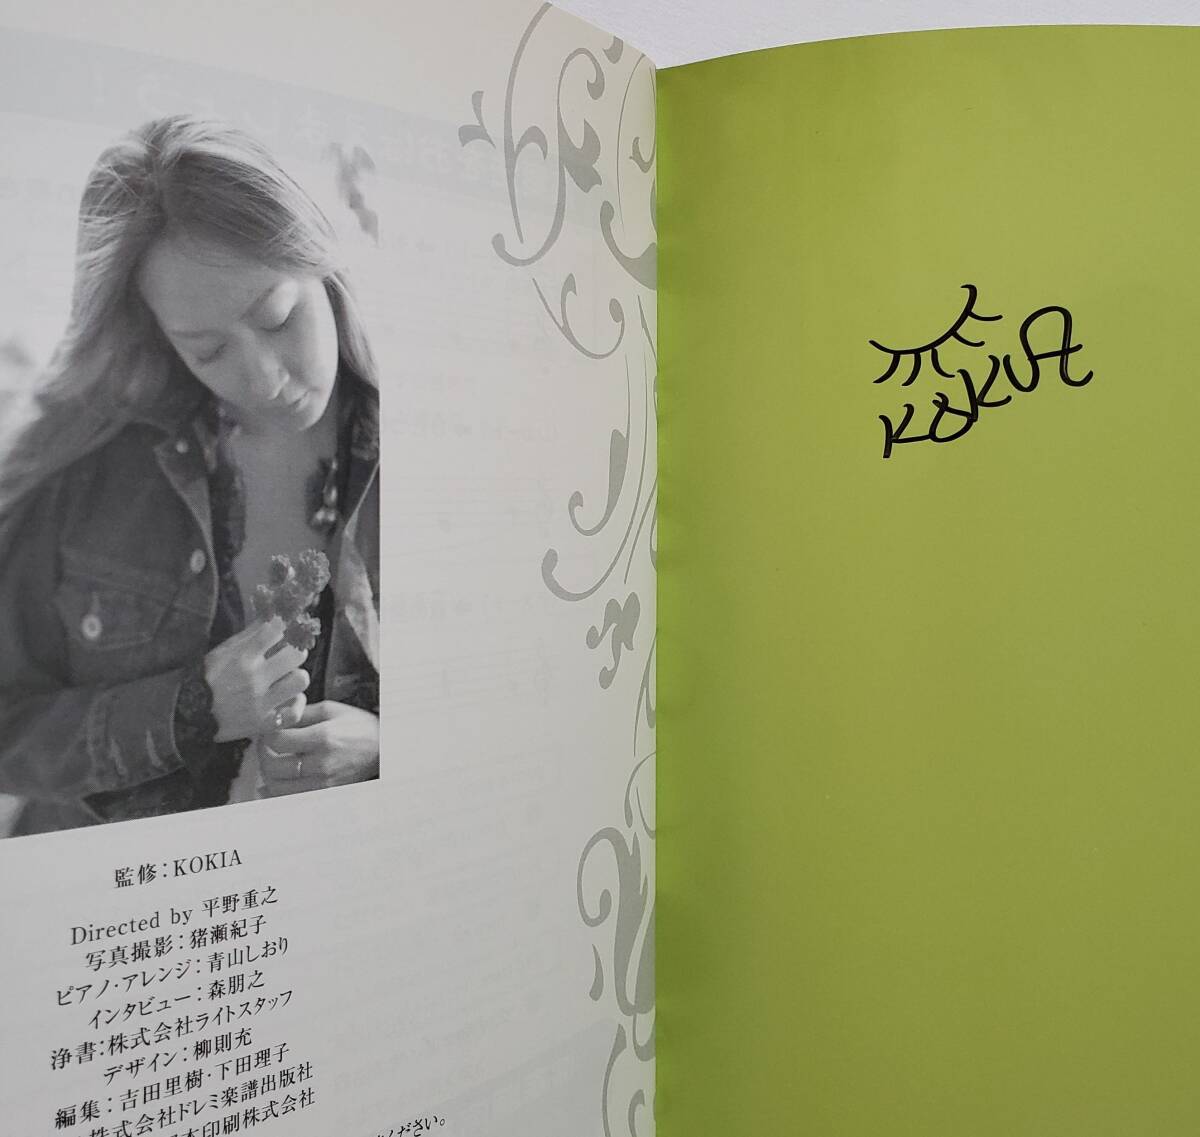 監修：KOKIA
Directed by 平野重之
写真撮影：猪瀬紀子
ピアノ・アレンジ：青山しおり
インタビュー：森朋之
浄書：株式会社ライトスタッフ
デザイン：柳則充
編集：吉田里樹・下田理子
株式会社ドレミ楽譜出版社
本印刷株式会社
ください。
KOKIA